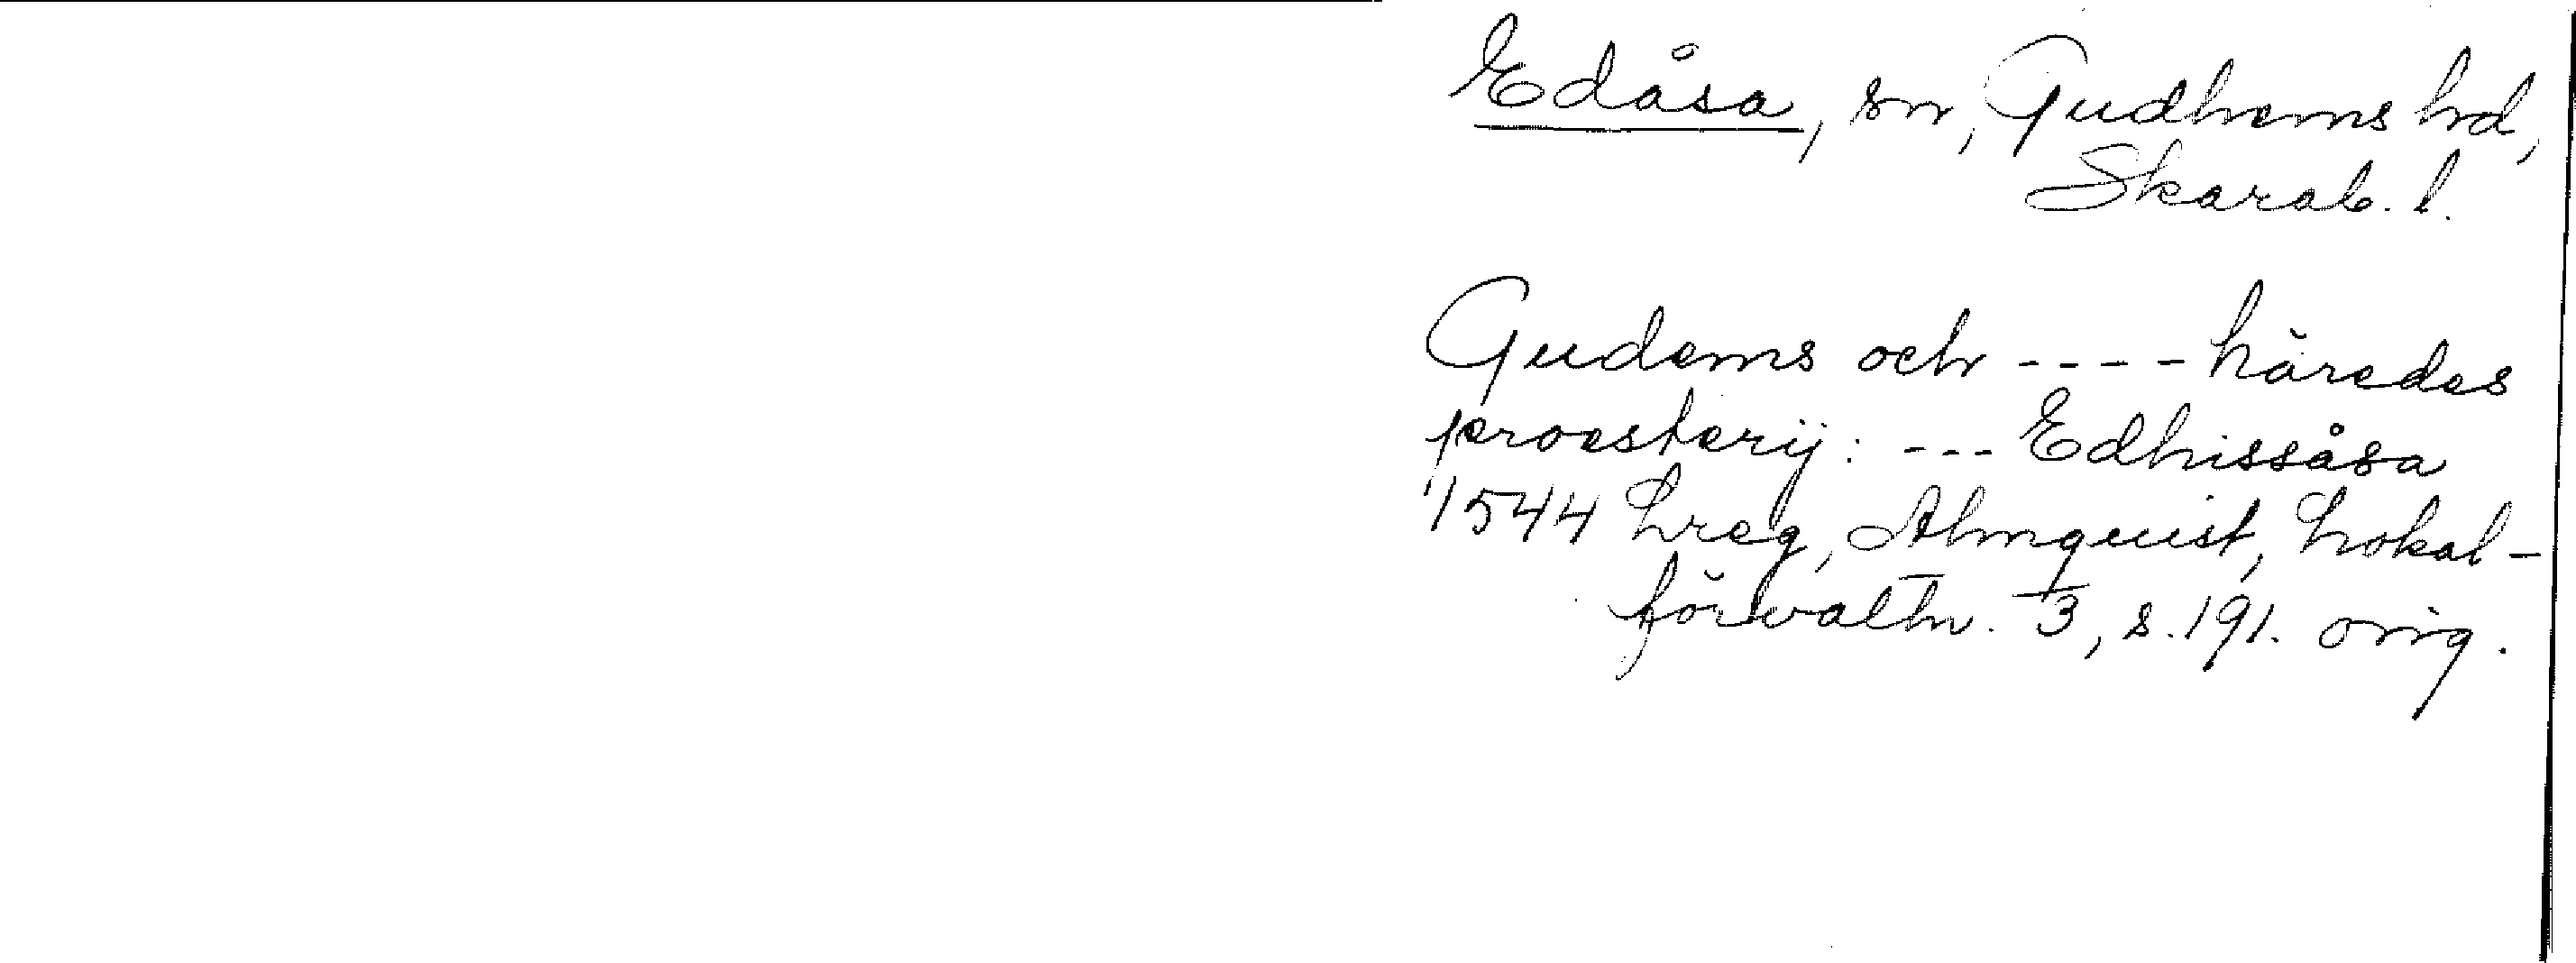 Edåsa, sn, Gudhems hd,
Skarab. l.
Gudems och ---- häredes
proesterij: --- Edhissåsa
1544 Lreg, Almquist, Lokal-
förvaltn. 3, s. 191. orig.